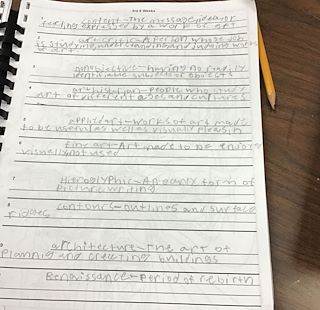 3rd 6 Weeks
content-The message, idea, or
feeling expressed by a work of art
2 art critic-A person whose job
is studying, understanding and judging works
of art
3 nonobjective-having no readily
identifiable subjects or objects
art historian-people who study
art of different ages and cultures
5 applied art-works of art made
to be useful as well as visually pleasin
6 fine art-Art made to be enjoyed
visually not used
7 Hieroglyphic-An early form of
picture writing
8 contours-outlines and surface
ridges
9 architecture-The art of
planning and creating buildings
Renaissance-Period of rebirth